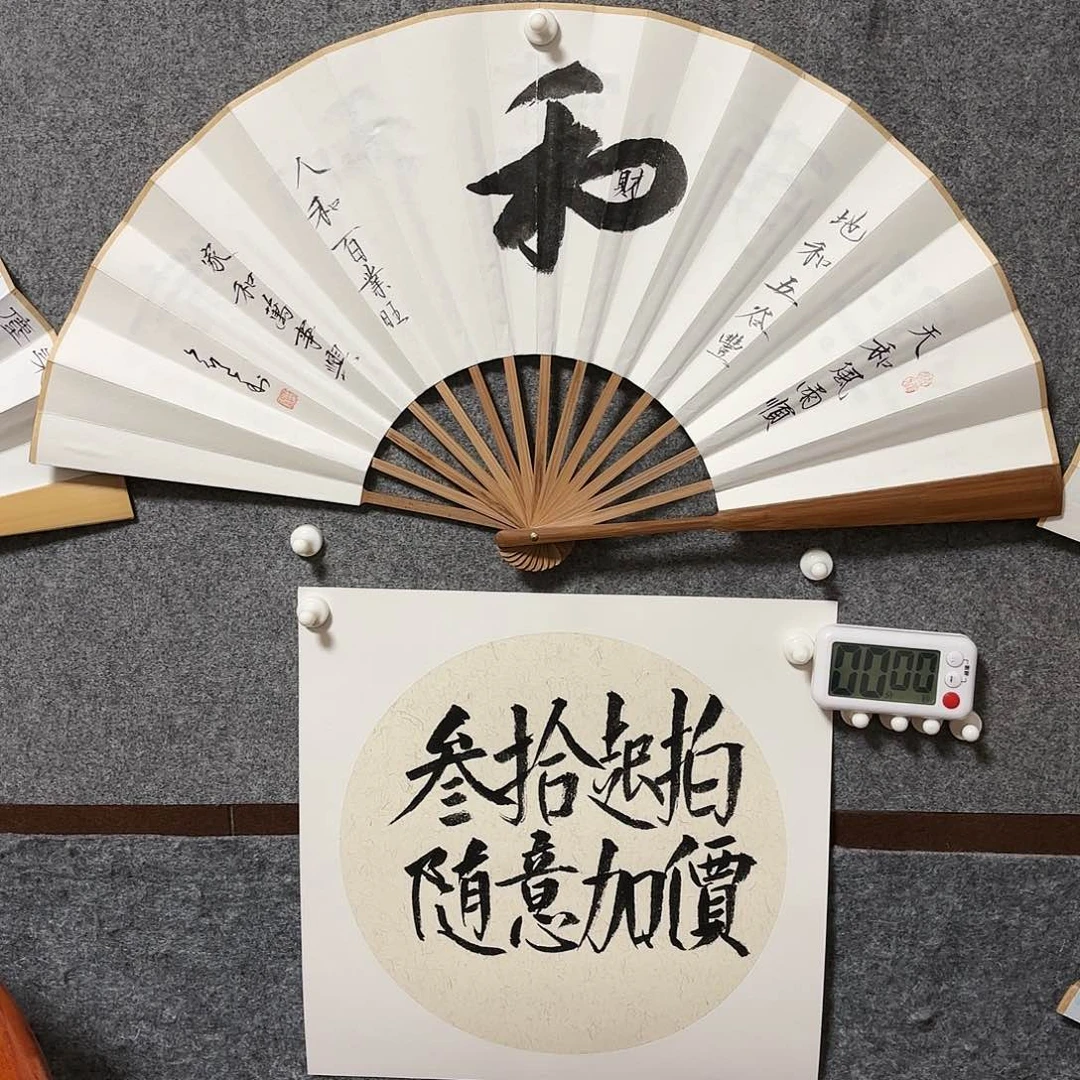 和
財
天和風雨順
地和五谷豐
人和百業旺
家和萬事興
叁拾起拍
隨意加價
00 00